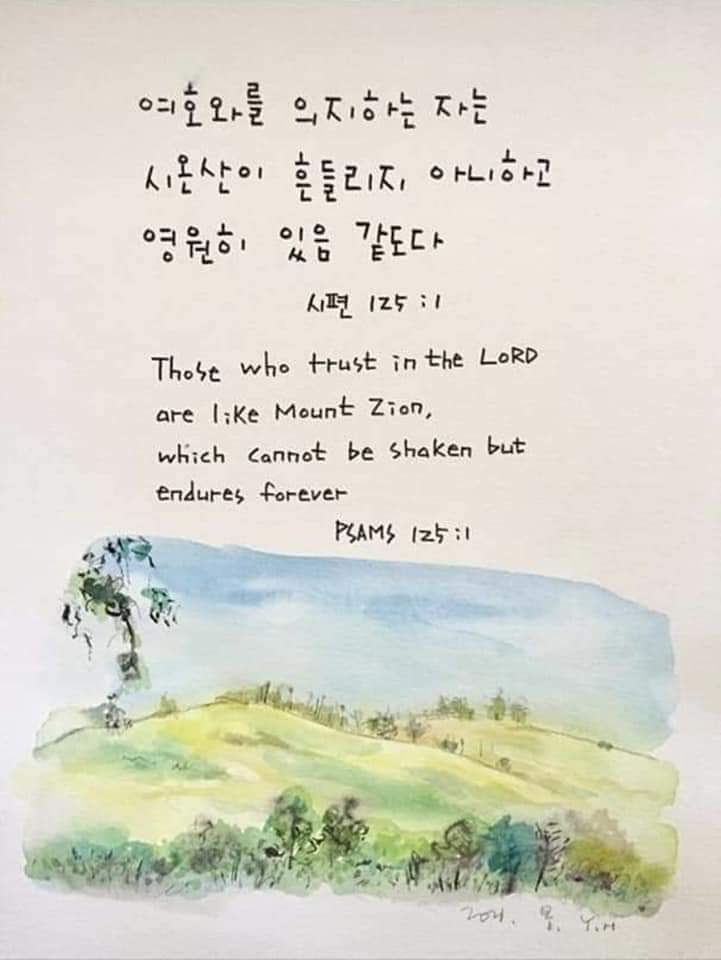 여호와를 의지하는 자는
시온산이 흔들리지 아니하고
영원히 있음 같도다
시편 125:1
Those who trust in the LORD
are like Mount Zion,
which cannot be shaken but
endures forever
PSAMS 125:1
2021. 봄. Y.H